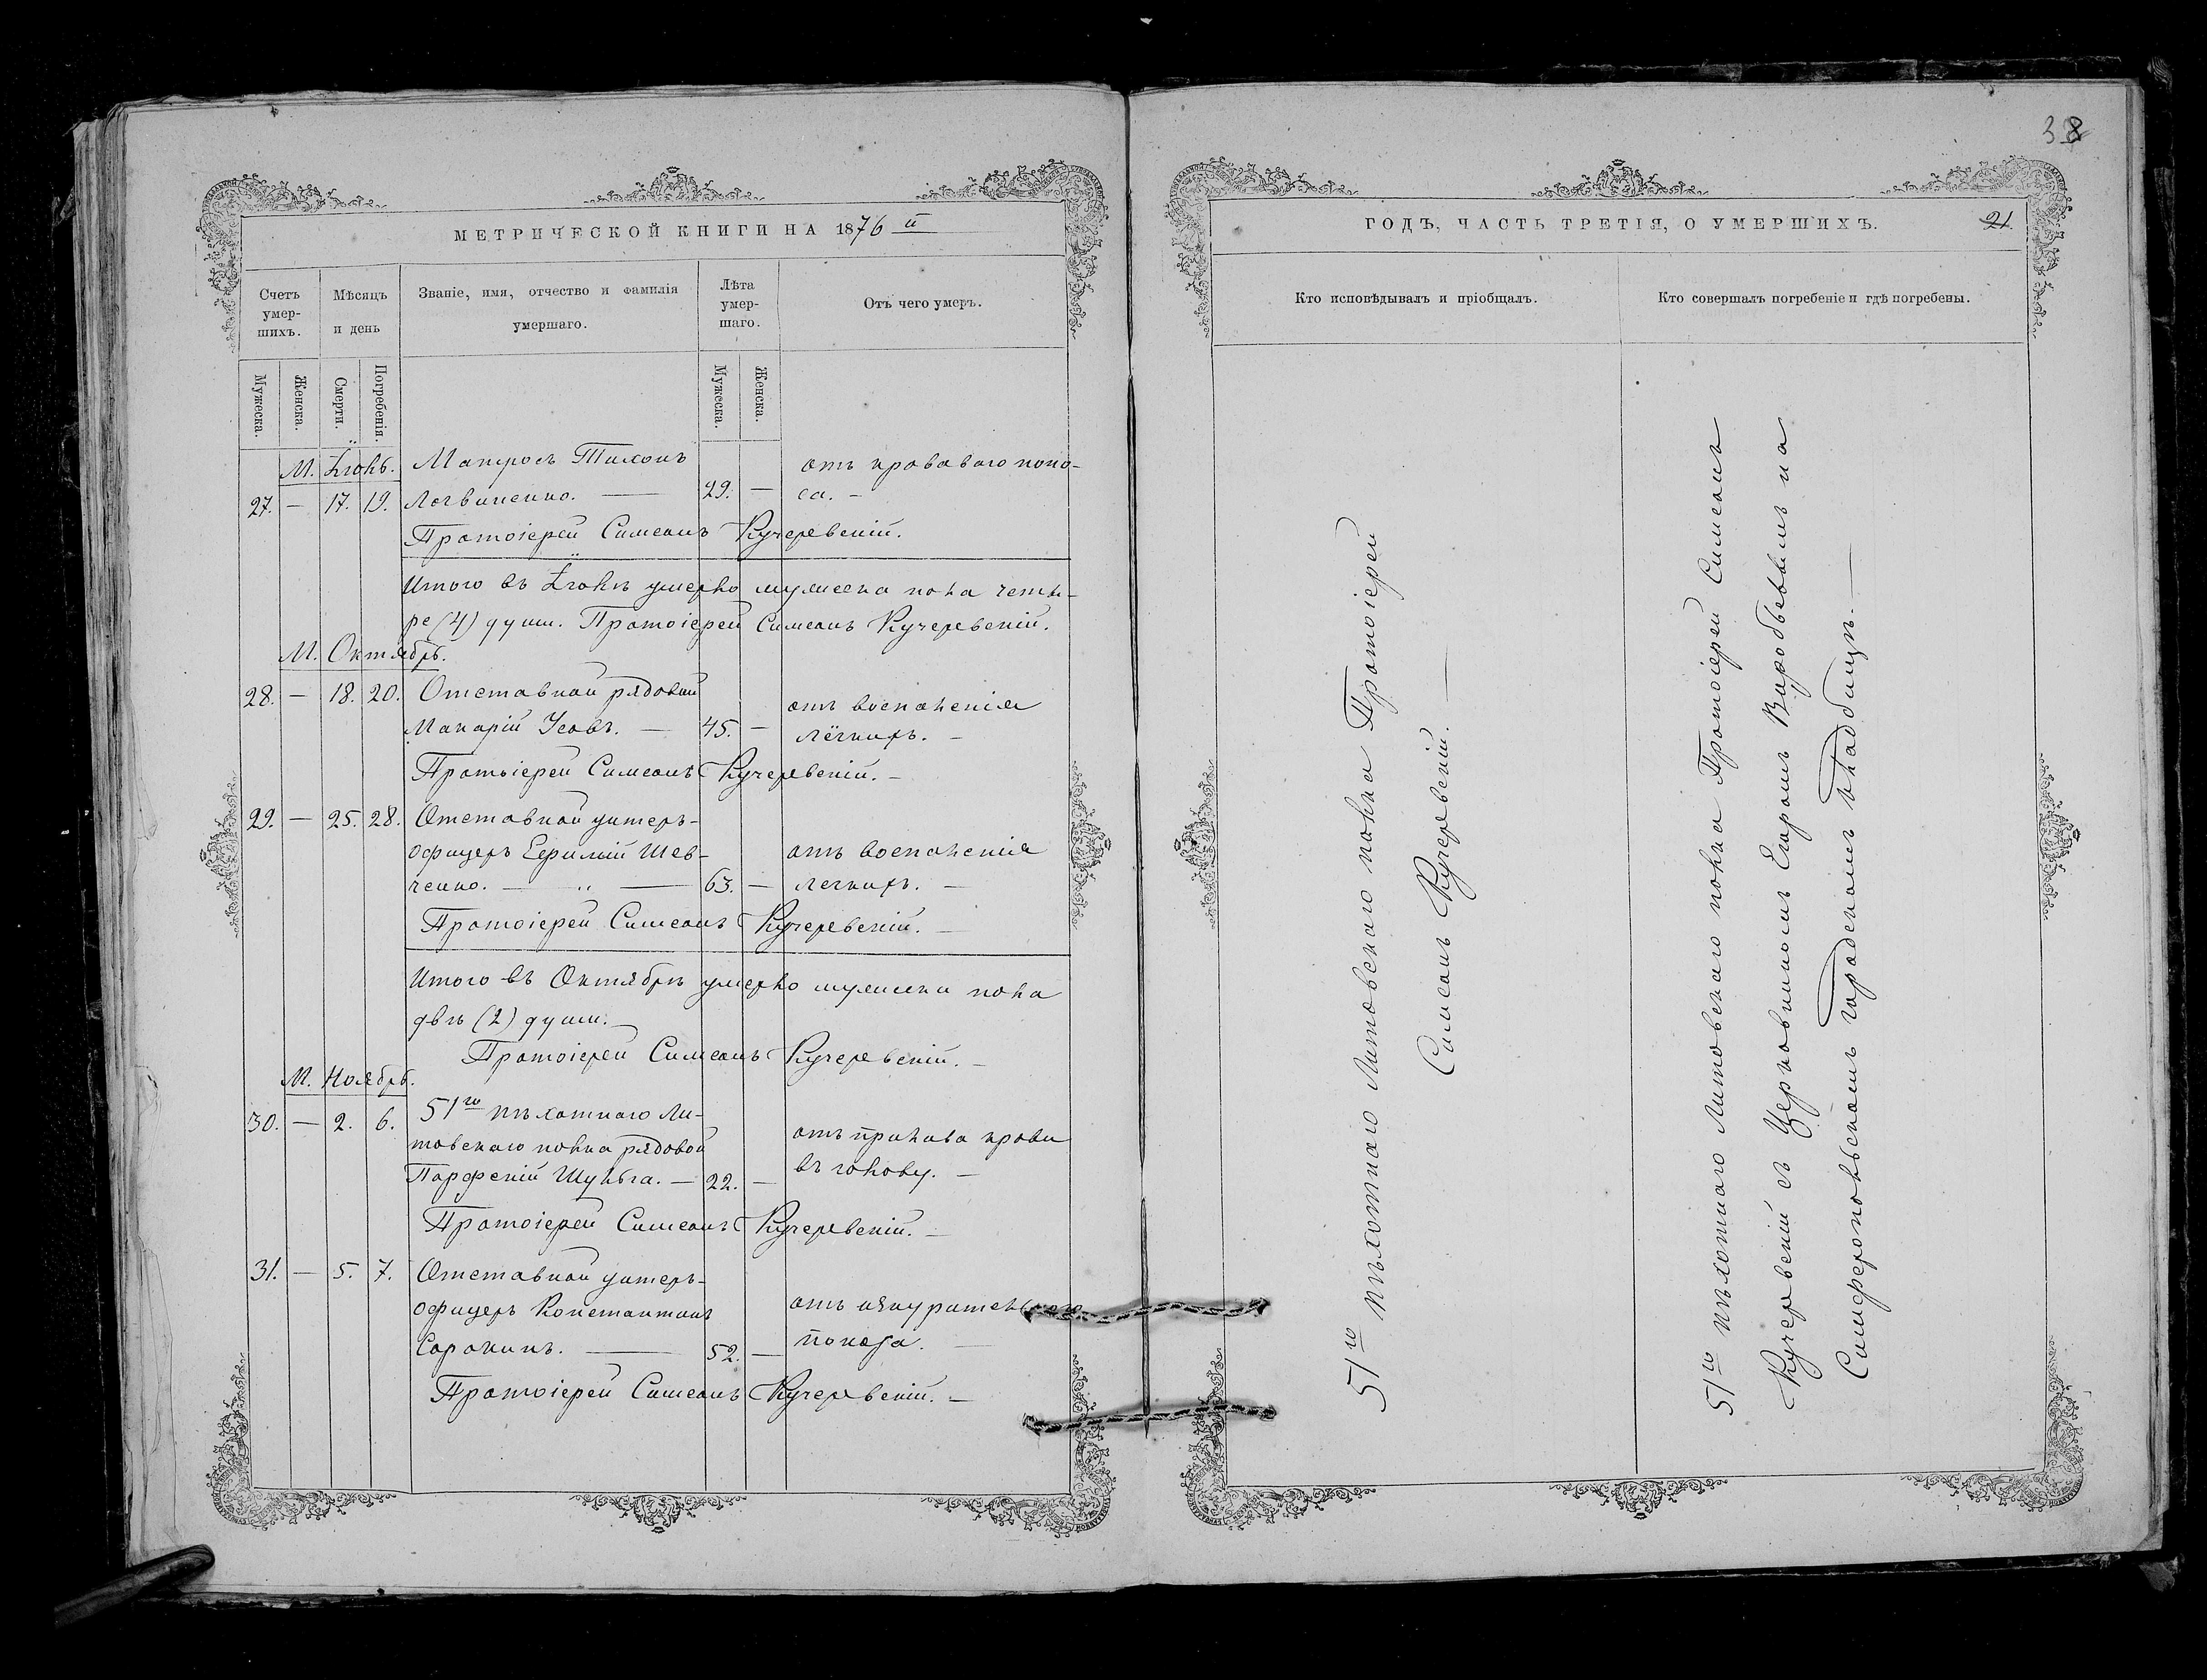 МЕТРИЧЕСКОЙ КНИГИ НА 1876 й
Счетъ умер-шихъ.
Мѣсяцъ и день
Званіе, имя, отчество и фамилія
умершаго.
Лѣта умер-шаго.
Отъ чего умеръ.
Мужеска.
Женска.
Смерти.
Погребенія.
Мужеска.
Женска.
М. Іюль. Матросъ Тихонъ отъ кроваваго поно-
27. — 17. 19. Логвиненко. — 29. — са. —
Протоіерей Симеонъ Кучеревскій.
Итого въ Іюлѣ умерло мужеска пола четы-
ре (4) души. Протоіерей Симеонъ Кучеревскій.
М. Октябрь.
28. — 18. 20. Отставной рядовой отъ воспаленія
Макарій Усовъ. — 45. — лёгкихъ. —
Протоіерей Симеонъ Кучеревскій. —
29. — 25. 28. Отставной унтеръ-
офицеръ Ефимій Шев- отъ воспаленія
ченко. — " — 63. — легкихъ. —
Протоіерей Симеонъ Кучеревскій. —
Итого въ Октябрѣ умерло мужеска пола
двѣ (2) души. —
Протоіерей Симеонъ Кучеревскій. —
М. Ноябрь.
30. — 2. 6. 51го пѣхотнаго Ли-
товскаго полка рядовой отъ прилива крови
Парфеній Шульга. — 22. — въ голову. —
Протоіерей Симеонъ Кучеревскій. —
31. — 5. 7. Отставной унтеръ-
офицеръ Константинъ отъ
Сорокинъ. — 52. —
Протоіерей Симеонъ Кучеревскій. —
38
ГОДЪ, ЧАСТЬ ТРЕТІЯ, О УМЕРШИХЪ. 21.
Кто исповѣдывалъ и пріобщалъ.
Кто совершалъ погребеніе и гдѣ погребены.
51го пѣхотнаго Литовскаго полка Протоіерей
Симеонъ Кучеревскій. —
51го пѣхотнаго Литовскаго полка Протоіерей Симеонъ
Кучеревскій съ Церковникомъ Егоромъ Воробьевымъ на
Симферопольскомъ городскомъ кладбищѣ. —